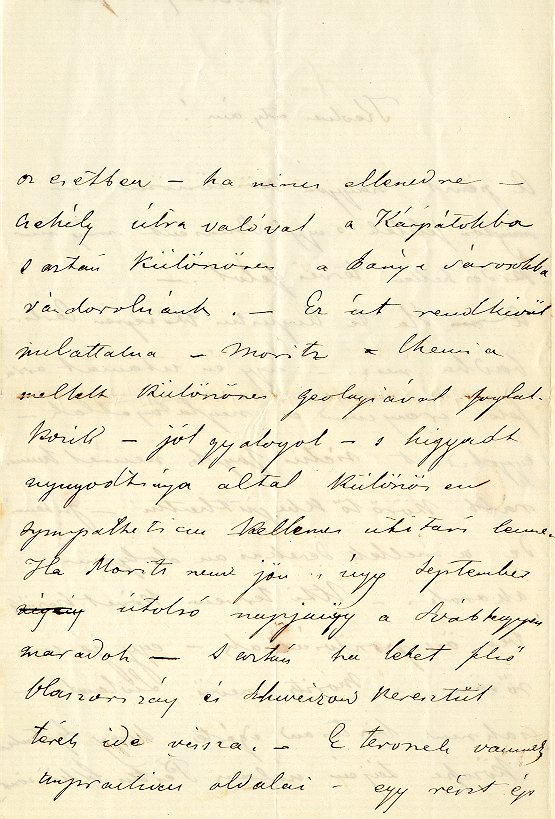 ez esetben – ha nincs ellenedre –
csekély útra valóval a Kárpátokba
s aztán különösen a bánya városokba
vándorolnánk. – Ez út rendkivül
mulattatna – Moritz a Chemia
mellett különösen geologiával foglal-
kozik – jól gyalogol – s higgadt
nyugodtsága által különösen
sympatheticus kellemes útitárs lenne.
Ha Moritz nem jön úgy September
utolsó napjaiig a Svábhegyen
maradok – s aztán ha lehet felső
Olaszország és Schweizon keresztül
térek ide vissza. – E tervnek vannak
unpracticus oldalai – egy részt épp